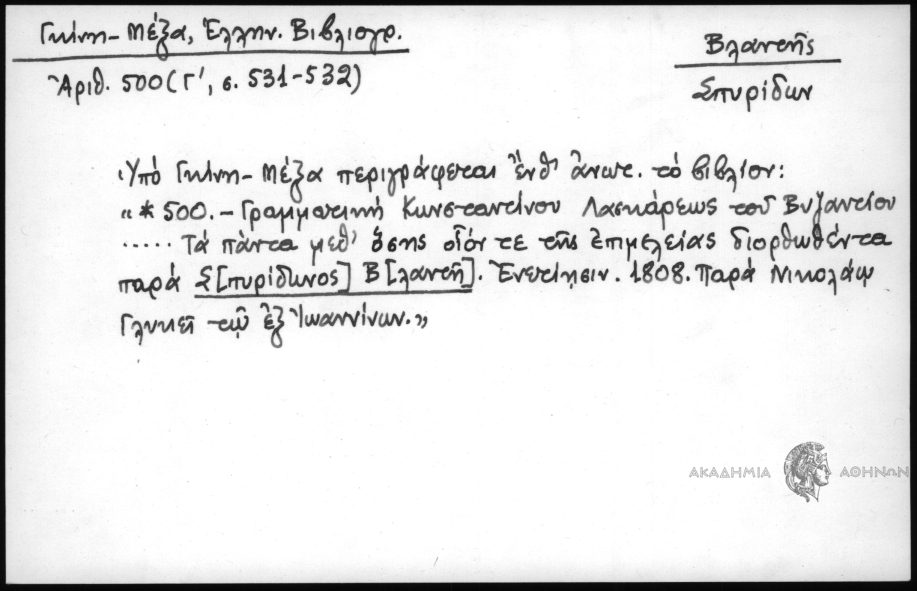 Γκίνη-Μέξα, Ἑλλην. Βιβλιογρ.
Ἀριθ. 500 (Γ', σ. 531-532)
Βλαντῆς
Σπυρίδων
Ὑπό Γκίνη-Μέξα περιγράφεται ἔνθ' ἀνωτ. τό βιβλίον:
«*500.- Γραμματική Κωνσταντίνου Λασκάρεως τοῦ Βυζαντίου
..... Τά πάντα μεθ' ὅσης οἷόν τε τῆς ἐπιμελείας διορθωθέντα
παρά Σ[πυρίδωνος] Β[λαντῆ]. Ἐνετίησιν. 1808. Παρά Νικολάῳ
Γλυκεῖ τῷ ἐξ Ἰωαννίνων.»
ΑΚΑΔΗΜΙΑ ΑΘΗΝΩΝ